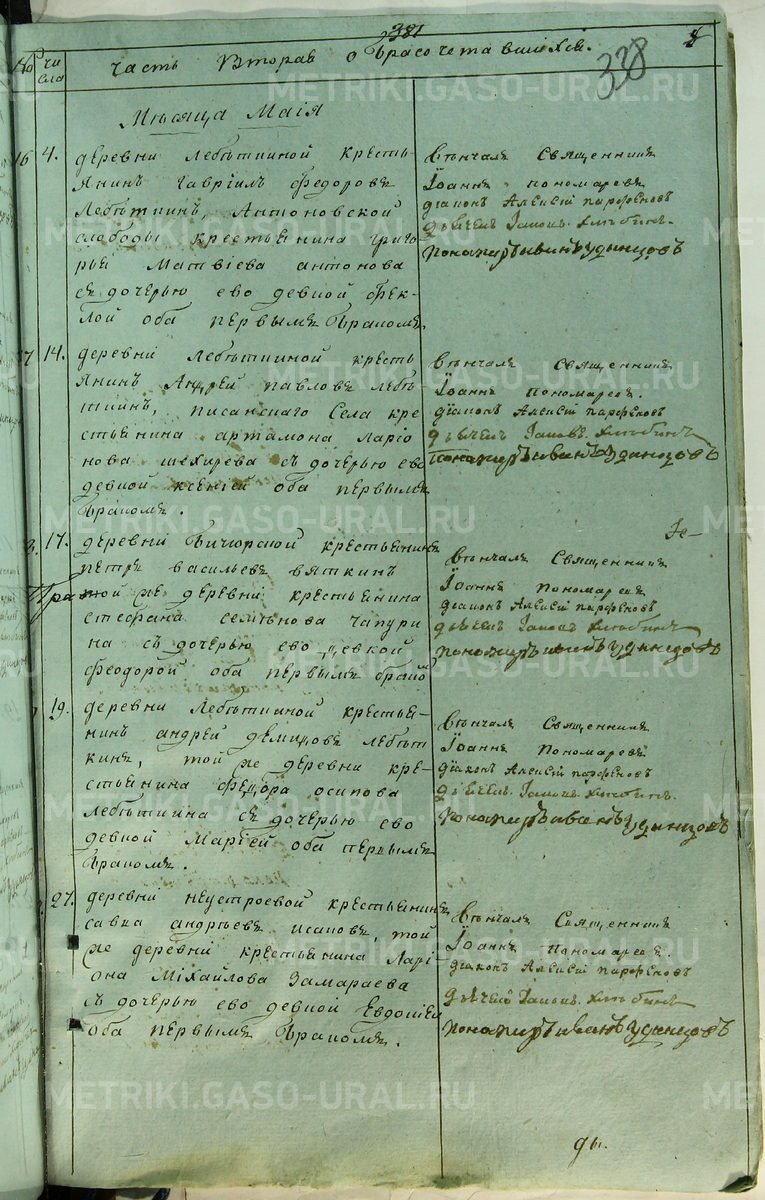 381
4
338
№ чи
сла
Часть Вторая о бракосочетавшихся.
Мѣсяца Маія
16 4. деревни Лебѣткиной кресть-
янинъ Гавріилъ Федоровъ
Лебѣткинъ, Антоновской
слободы крестьянина Григо
рья Матвіева Антонова
съ дочерью ево девкой Фек-
лой оба первымъ бракомъ.
Вѣнчалъ Священникъ
Іоаннъ Пономаревъ
діаконъ Алексій Парфеновъ
дьячекъ Хлыбинъ.
Пономарь Иванъ Удинцовъ
14. деревни Лебѣткиной кресть
янинъ Андрей Павловъ Лебѣ
ткинъ, Писанскаго Села кре
стьянина Артамона Ларіо
нова съ дочерью ево
девкой Ксеніей оба первымъ
бракомъ.
Вѣнчалъ Священникъ
Іоаннъ Пономаревъ.
діаконъ Алексій Парфеновъ
дьячекъ Хлыбинъ
Пономарь Иванъ Удинцовъ
17. деревни Бичурской крестьянинъ
Петръ Васильевъ Вяткинъ
той же деревни крестьянина
Стефана Семенова Чапури
на съ дочерью ево девкой
Феодорой оба первымъ бракомъ
Ге-
Вѣнчалъ Священникъ
Іоаннъ Пономаревъ
діаконъ Алексій Парфеновъ
дьячекъ Хлыбинъ
Пономарь Иванъ Удинцовъ
19. деревни Лебѣткиной крестья-
нинъ Андрей Демидовъ Лебѣт
кинъ, той же деревни кре-
стьянина Федора Осипова
Лебѣткина съ дочерью ево
девкой Маріей оба первымъ
бракомъ.
Вѣнчалъ Священникъ
Іоаннъ Пономаревъ
діаконъ Алексій Парфеновъ
дьячекъ Хлыбинъ.
Пономарь Иванъ Удинцовъ
27. деревни Неустроевой крестьянинъ
Савва Андрѣевъ Исаковъ, той
же деревни крестьянина Ларі-
она Міхайлова Замараева
съ дочерью ево девкой Евдокіей
оба первымъ бракомъ.
Вѣнчалъ Священникъ
Іоаннъ Пономаревъ.
діаконъ Алексій Парфеновъ
дьячекъ Хлыбинъ
Пономарь Иванъ Удинцовъ
ды.
METRIKI.GASO-URAL.RU